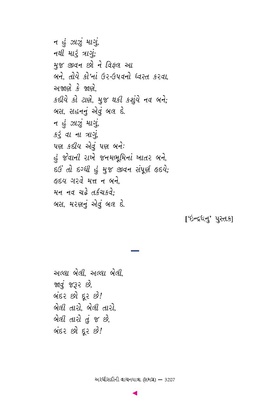 ન હું ઝાઝું માગું,
નથી માર્ગ ત્રાગું;
મુજ જીવન છો ને વિફલ આ
બને, તોયે કો'નાં ઉર-ઉપવનો ધ્વસ્ત કરવા,
અજાણે કે જાણે,
કદીયે કો ટાણે, મુજ થકી કસૂંયે નવ બને;
બસ, સહનનું એવું બલ દે.
ન હું ઝાઝું માગું,
કરું વા ના ત્રાગું;
પણ કદીય એવું પણ બનેઃ
હું જેવાની રાખે જનમભૂમિનાં ખાતર બને,
દઉં તો દગ્ધી હું મુજ જીવન સંપૂર્ણ હૃદયે;
હૃદય ગરવે મત્ત ન બને.
મન નવ ચઢે તર્કચકવે;
બસ, મરણનું એવું બલ દે.
['ઇન્દ્રધનુ' પુસ્તક]
અલ્લા બેલી, અલ્લા બેલી,
જાવું જરૂર છે,
બંદર છો દૂર છે!
બેલી તારો, બેલી તારો,
બેલી તારો તું જ છે,
બંદર છો દૂર છે!
અરધીસદીની વાચનયાત્રા (ભેગા) — 3227